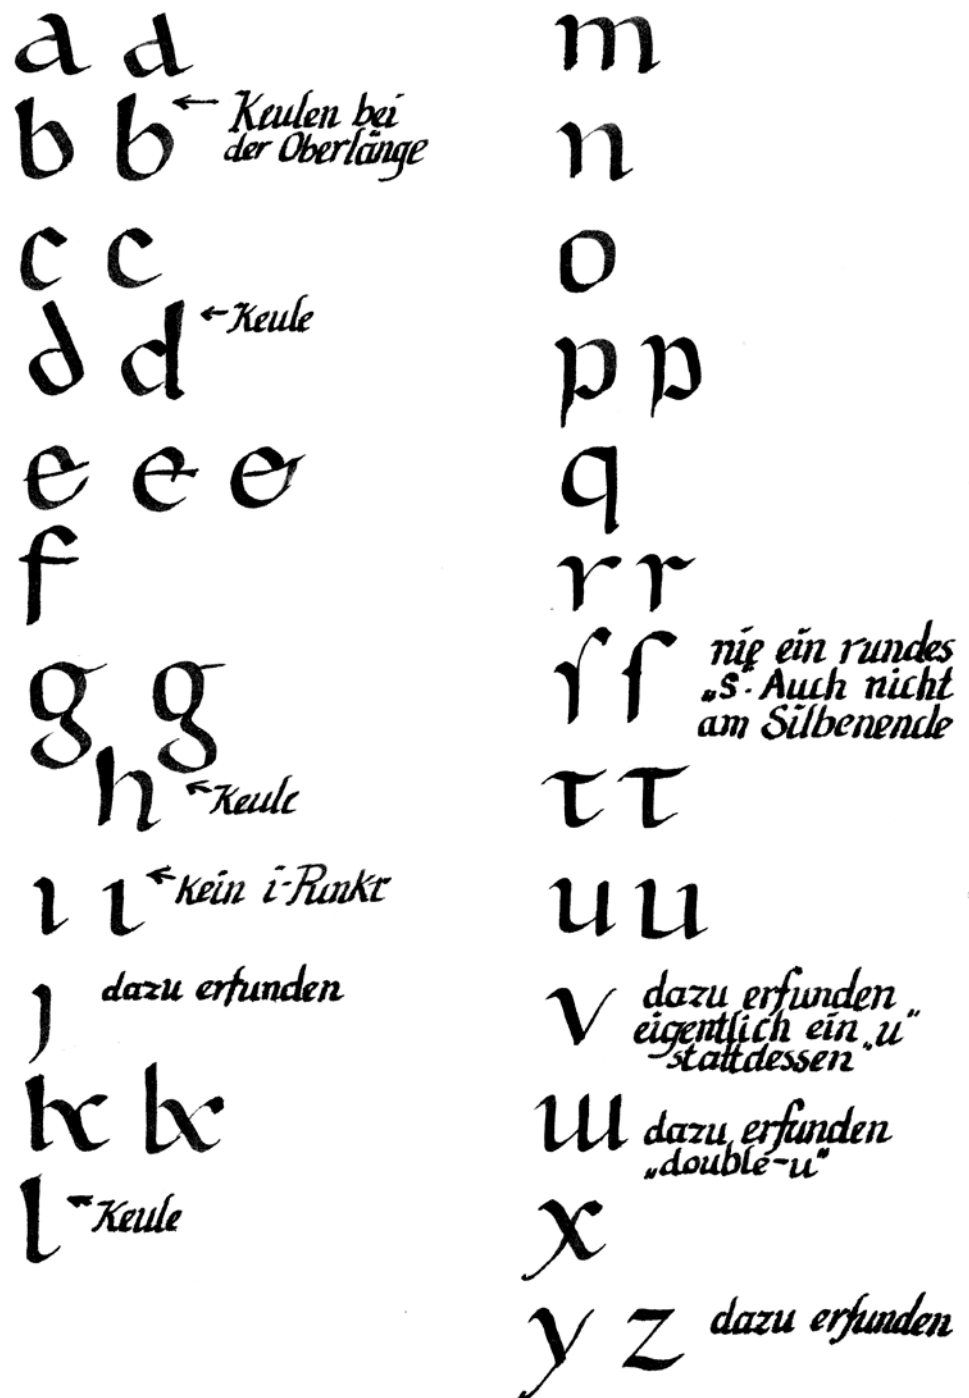 a d
b b ← Keulen bei
der Oberlänge
c c
d d ← Keule
e e e
f
g g
h ← Keule
ı ı ← Kein i-Punkt
ȷ dazu erfunden
k k
l ← Keule
m
n
o
p p
q
r r
ſ ſ nie ein rundes
„s". Auch nicht
am Silbenende
τ τ
u u
v dazu erfunden
eigentlich ein „u"
stattdessen
w dazu erfunden
„double-u"
x
y z dazu erfunden